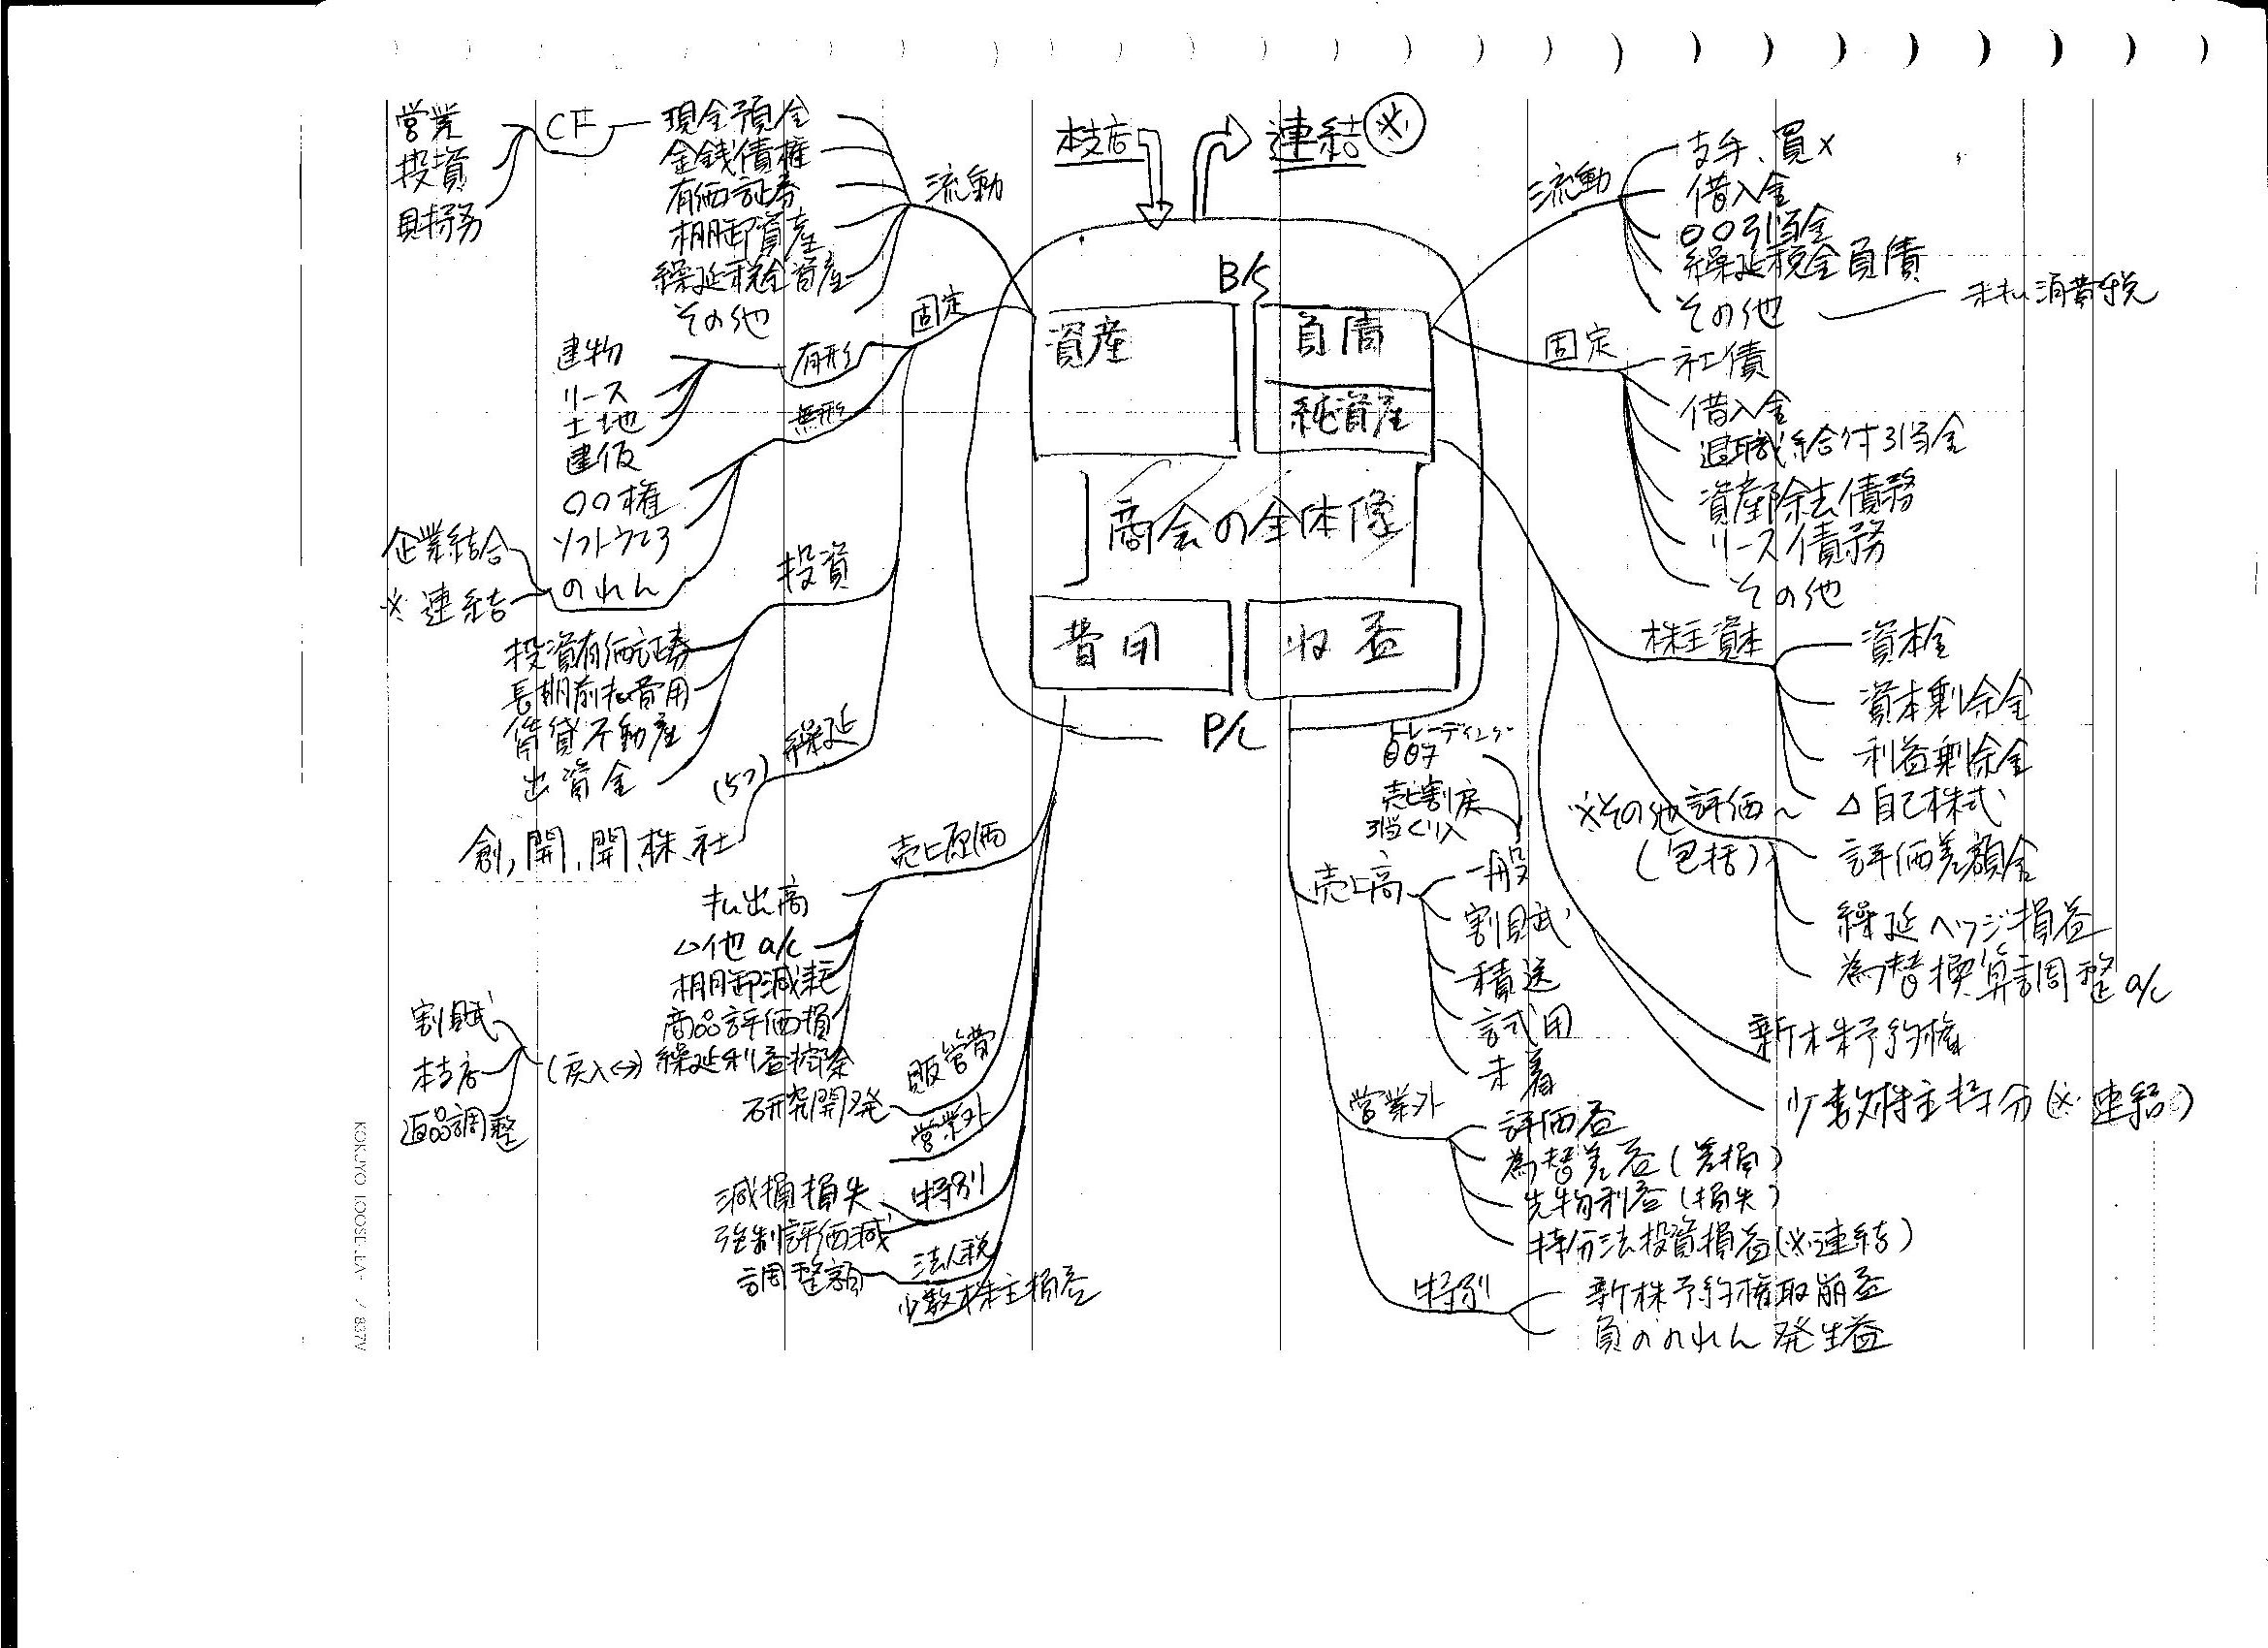 営業
投資
財務
CF
現金預金
金銭債権
有価証券
棚卸資産
繰延税金資産
その他
流動
固定
有形
建物
リース
土地
建仮
無形
〇〇権
ソフトウェア
のれん
企業結合
※連結
投資
投資有価証券
長期前払費用
賃貸不動産
出資金
繰延
(5つ)
創,開,開,株,社
本支店
連結※
B/S
資産
負債
純資産
商会の全体像
費用
収益
P/L
流動
支手、買×
借入金
〇〇引当金
繰延税金負債
その他
未払消費税
固定
社債
借入金
退職給付引当金
資産除去債務
リース債務
その他
株主資本
資本金
資本剰余金
利益剰余金
△自己株式
※その他評価~
(包括)
評価差額金
繰延ヘッジ損益
為替換算調整a/c
新株予約権
少数株主持分(※連結)
売上原価
払出高
△他a/c
棚卸減耗
商品評価損
繰延利益控除
(戻入⇔)
割賦
本支店
返品調整
販管費
研究開発
営業外
特別
減損損失
強制評価減
法人税
調整額
少数株主損益
トレーディング
目的
売上割戻
引当くり入
売上高
一般
割賦
積送
試用
未着
営業外
評価益
為替差益(差損)
先物利益(損失)
持分法投資損益(※連結)
特別
新株予約権取崩益
負ののれん発生益